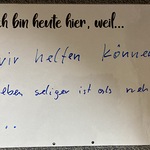 ch bin heute hier, weil...
wir helfen könne
eben seliger ist als neh
...